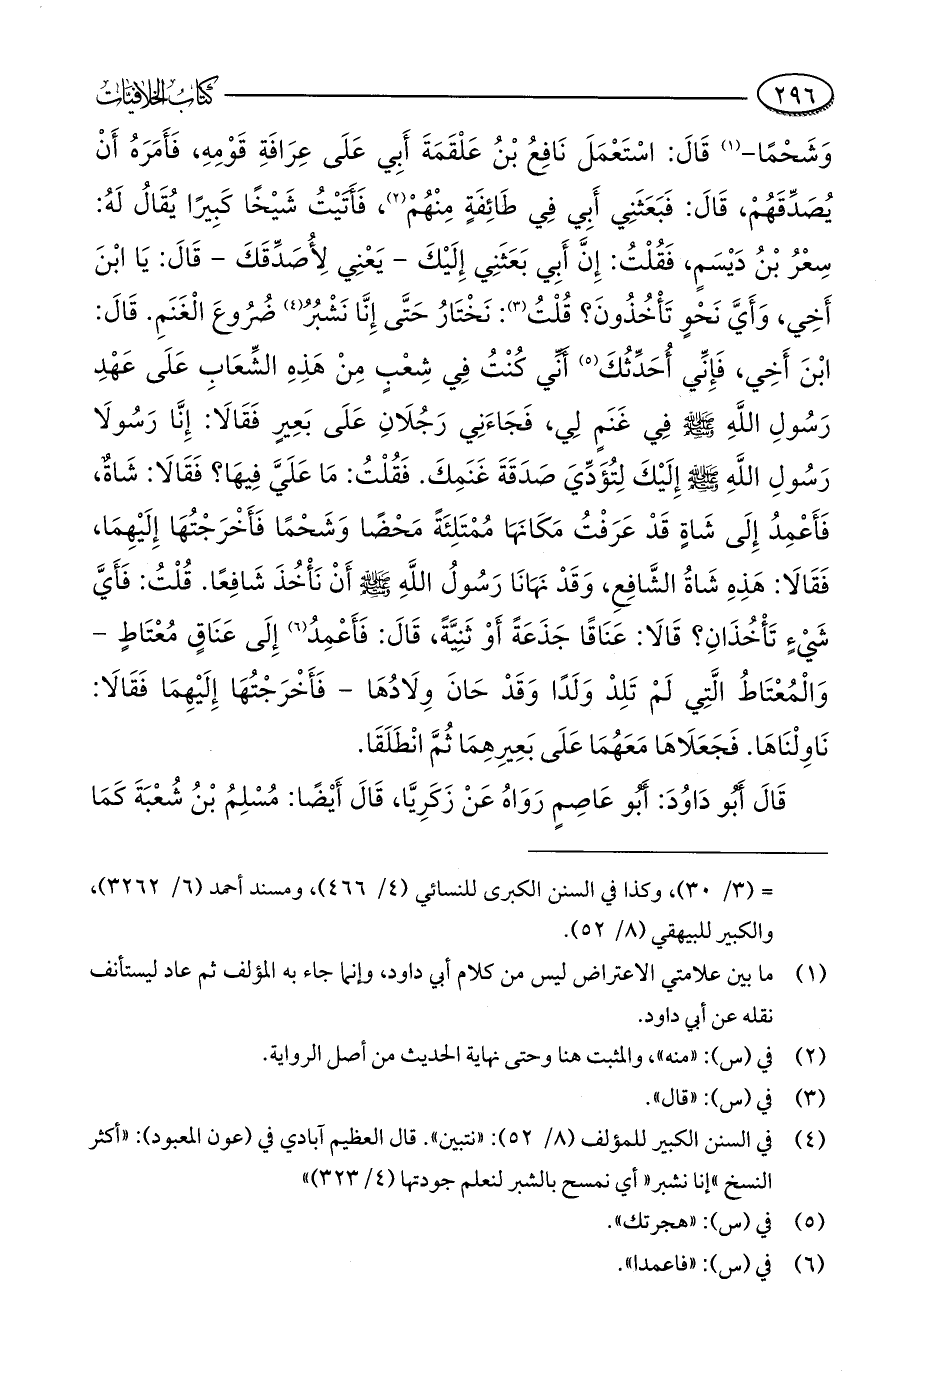 ٢٩٦ كتاب الخلافيات
وَشَحْمًا-(١) قَالَ: اسْتَعْمَلَ نَافِعُ بْنُ عَلْقَمَةَ أَبِي عَلَى عِرَافَةِ قَوْمِهِ، فَأَمَرَهُ أَنْ
يُصَدِّقَهُمْ، قَالَ: فَبَعَثَنِي أَبِي فِي طَائِفَةٍ مِنْهُمْ(٢)، فَأَتَيْتُ شَيْخًا كَبِيرًا يُقَالُ لَهُ:
سِعْرُ بْنُ دَيْسَمٍ، فَقُلْتُ: إِنَّ أَبِي بَعَثَنِي إِلَيْكَ - يَعْنِي لِأُصَدِّقَكَ - قَالَ: يَا ابْنَ
أَخِي، وَأَيَّ نَحْوٍ تَأْخُذُونَ؟ قُلْتُ(٣): نَخْتَارُ حَتَّى إِنَّا نَشْبُرُ(٤) ضُرُوعَ الْغَنَمِ. قَالَ:
ابْنَ أَخِي، فَإِنِّي أُحَدِّثُكَ(٥) أَنِّي كُنْتُ فِي شِعْبٍ مِنْ هَذِهِ الشِّعَابِ عَلَى عَهْدِ
رَسُولِ اللَّهِ ﷺ فِي غَنَمٍ لِي، فَجَاءَنِي رَجُلَانِ عَلَى بَعِيرٍ فَقَالَا: إِنَّا رَسُولَا
رَسُولِ اللَّهِ ﷺ إِلَيْكَ لِتُؤَدِّيَ صَدَقَةَ غَنَمِكَ. فَقُلْتُ: مَا عَلَيَّ فِيهَا؟ فَقَالَا: شَاةٌ،
فَأَعْمِدُ إِلَى شَاةٍ قَدْ عَرَفْتُ مَكَانَهَا مُمْتَلِئَةً مَحْضًا وَشَحْمًا فَأَخْرَجْتُهَا إِلَيْهِمَا،
فَقَالَا: هَذِهِ شَاةُ الشَّافِعِ، وَقَدْ نَهَانَا رَسُولُ اللَّهِ ﷺ أَنْ نَأْخُذَ شَافِعًا. قُلْتُ: فَأَيَّ
شَيْءٍ تَأْخُذَانِ؟ قَالَا: عَنَاقًا جَذَعَةً أَوْ ثَنِيَّةً، قَالَ: فَأَعْمِدُ(٦) إِلَى عَنَاقٍ مُعْتَاطٍ -
وَالْمُعْتَاطُ الَّتِي لَمْ تَلِدْ وَلَدًا وَقَدْ حَانَ وِلَادُهَا - فَأَخْرَجْتُهَا إِلَيْهِمَا فَقَالَا:
نَاوِلْنَاهَا. فَجَعَلَاهَا مَعَهُمَا عَلَى بَعِيرِهِمَا ثُمَّ انْطَلَقَا.
قَالَ أَبُو دَاوُدَ: أَبُو عَاصِمٍ رَوَاهُ عَنْ زَكَرِيَّا، قَالَ أَيْضًا: مُسْلِمُ بْنُ شُعْبَةَ كَمَا
= (٣/ ٣٠)، وكذا في السنن الكبرى للنسائي (٤/ ٤٦٦)، ومسند أحمد (٦/ ٣٢٦٢)،
والكبير للبيهقي (٨/ ٥٢).
(١) ما بين علامتي الاعتراض ليس من كلام أبي داود، وإنما جاء به المؤلف ثم عاد ليستأنف
نقله عن أبي داود.
(٢) في (س): «منه»، والمثبت هنا وحتى نهاية الحديث من أصل الرواية.
(٣) في (س): «قال».
(٤) في السنن الكبير للمؤلف (٨/ ٥٢): «نتبين». قال العظيم آبادي في (عون المعبود): «أكثر
النسخ »إنا نشبر« أي نمسح بالشبر لنعلم جودتها (٤/ ٣٢٣)»
(٥) في (س): «هجرتك».
(٦) في (س): «فاعمدا».